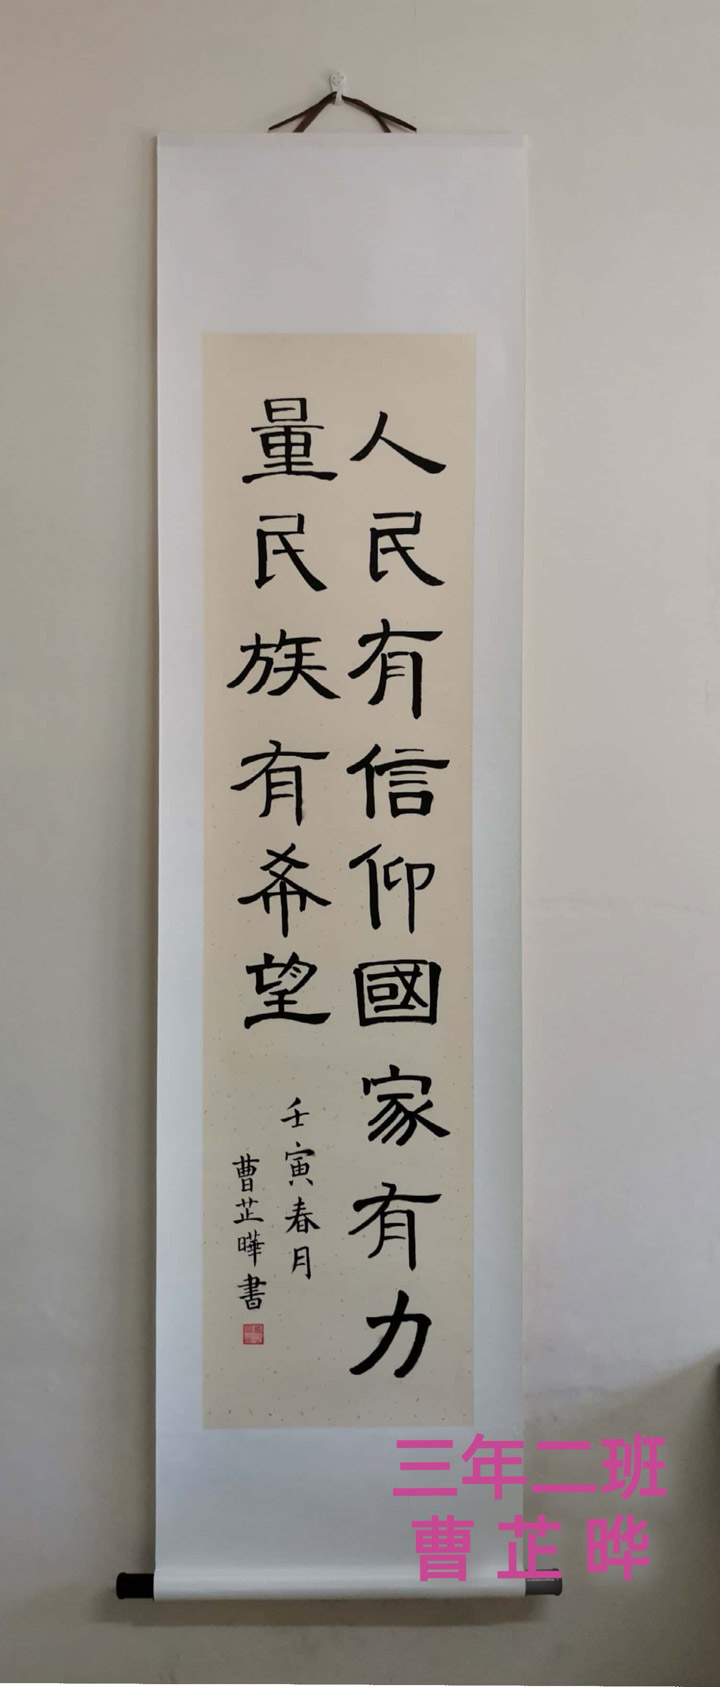 人民有信仰國家有力
量民族有希望
壬寅春月
曹芷曄書
三年二班
曹芷晔